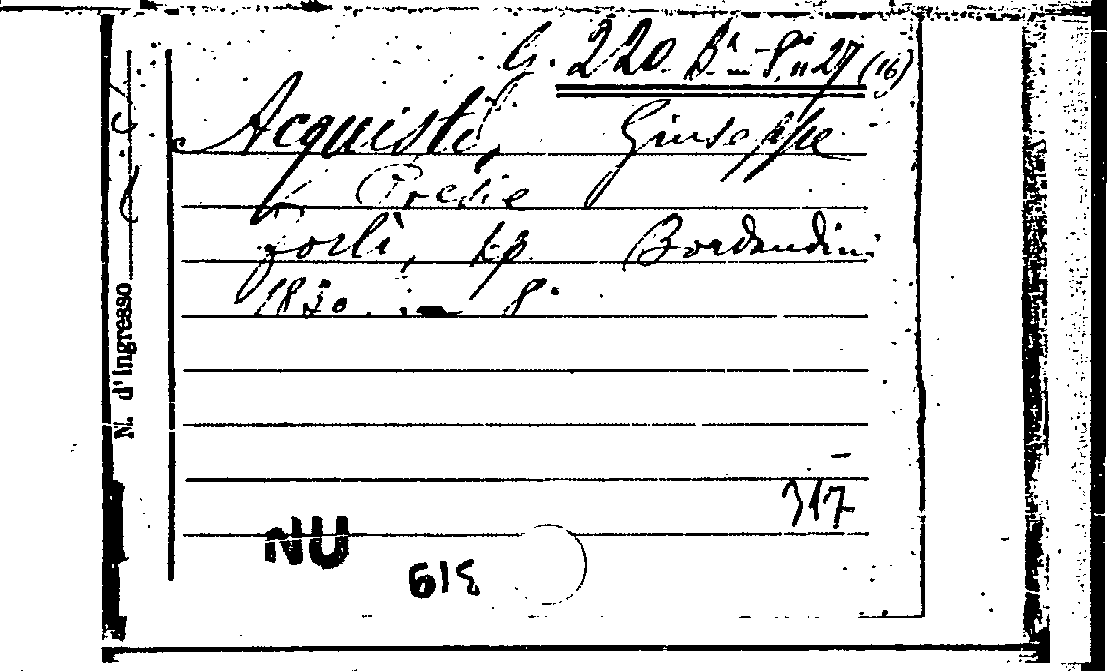 G. 220. Bª - P. n 27 (16)
Acquisti, Giuseppe
Poesie
Forlì, tip Bordandini
1830. - 8°
N. d'Ingresso
317
NU